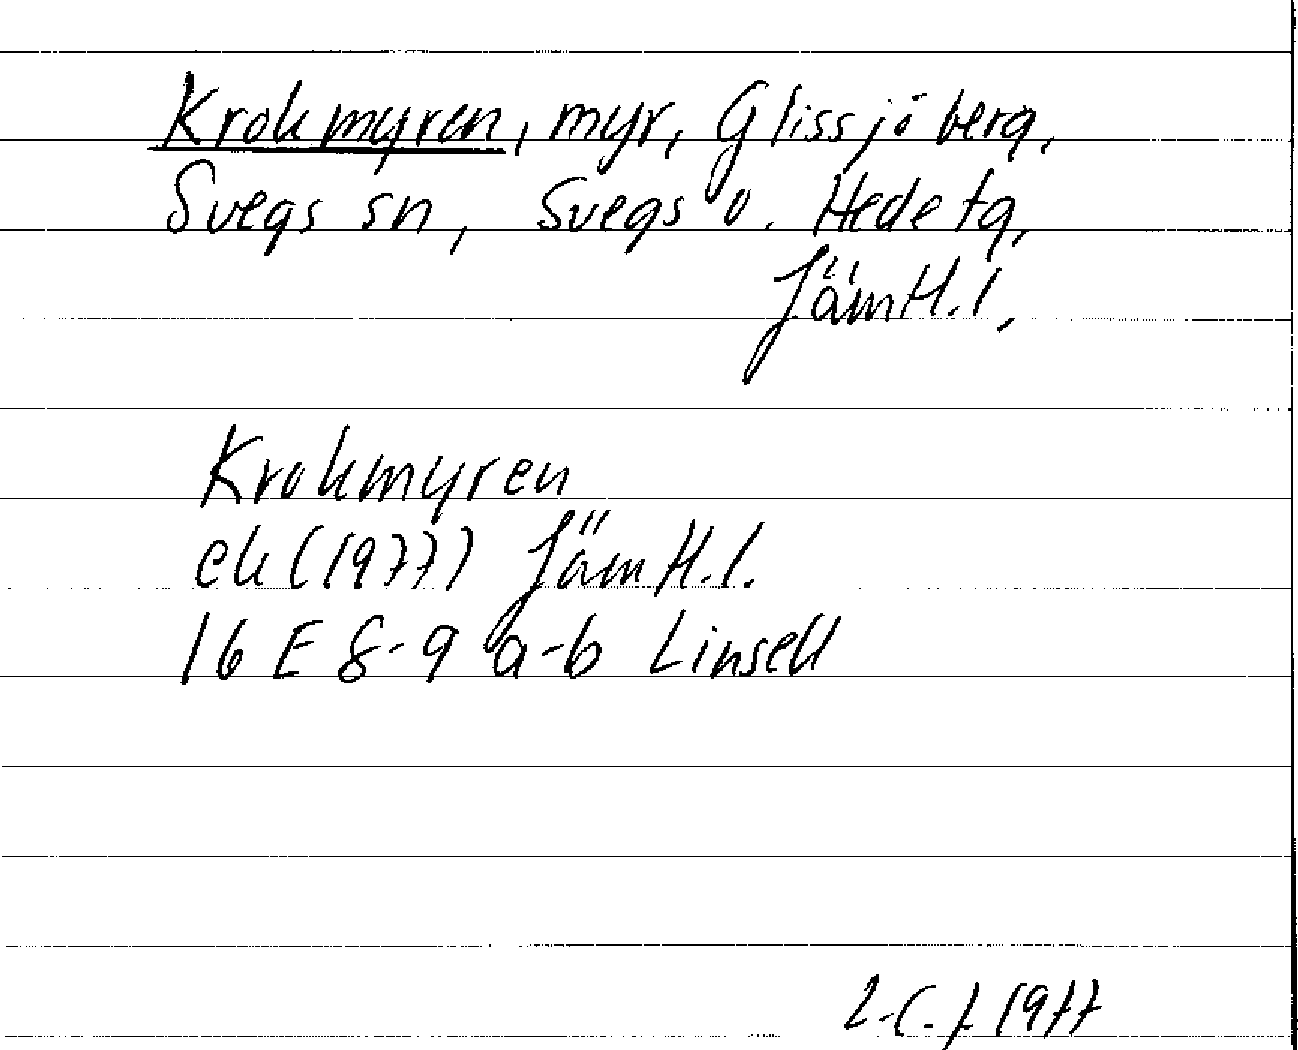 Krokmyren, myr, Glissjöberg,
Svegs sn, Svegs o. Hede tg,
Jämtl.l,
Krokmyren
ek (1977) Jämtl.l.
16 E 8-9 a-b Linsell
1977